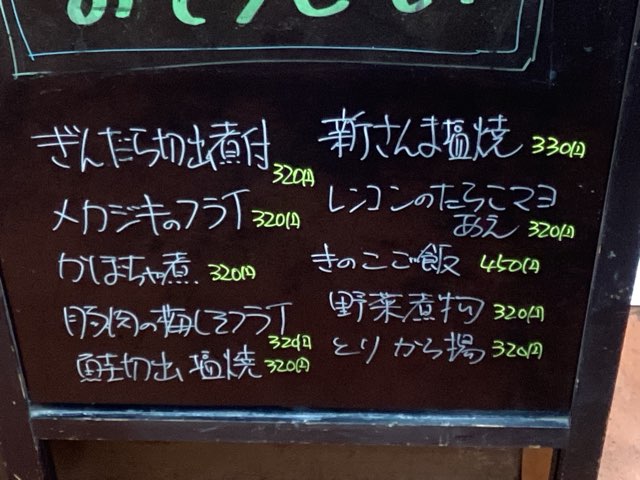 ぎんだら切出煮付
320円
メカジキのフライ 320円
かぼちゃ煮 320円
豚肉の梅しそフライ
320円
鮭切出塩焼 320円
新さんま塩焼 330円
レンコンのたらこマヨ
あえ 320円
きのこご飯 450円
野菜煮物 320円
とりから揚 320円